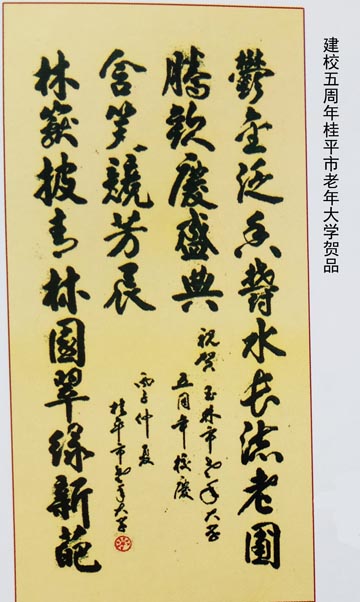 建校五周年桂平市老年大学贺品
鬱金泛香鬱水长流老圃
騰欢慶盛典
祝贺玉林市老年大学
五周年校慶
林披青林園翠绿新葩
含笑競芳晨
丙子仲夏
桂平市老年大学